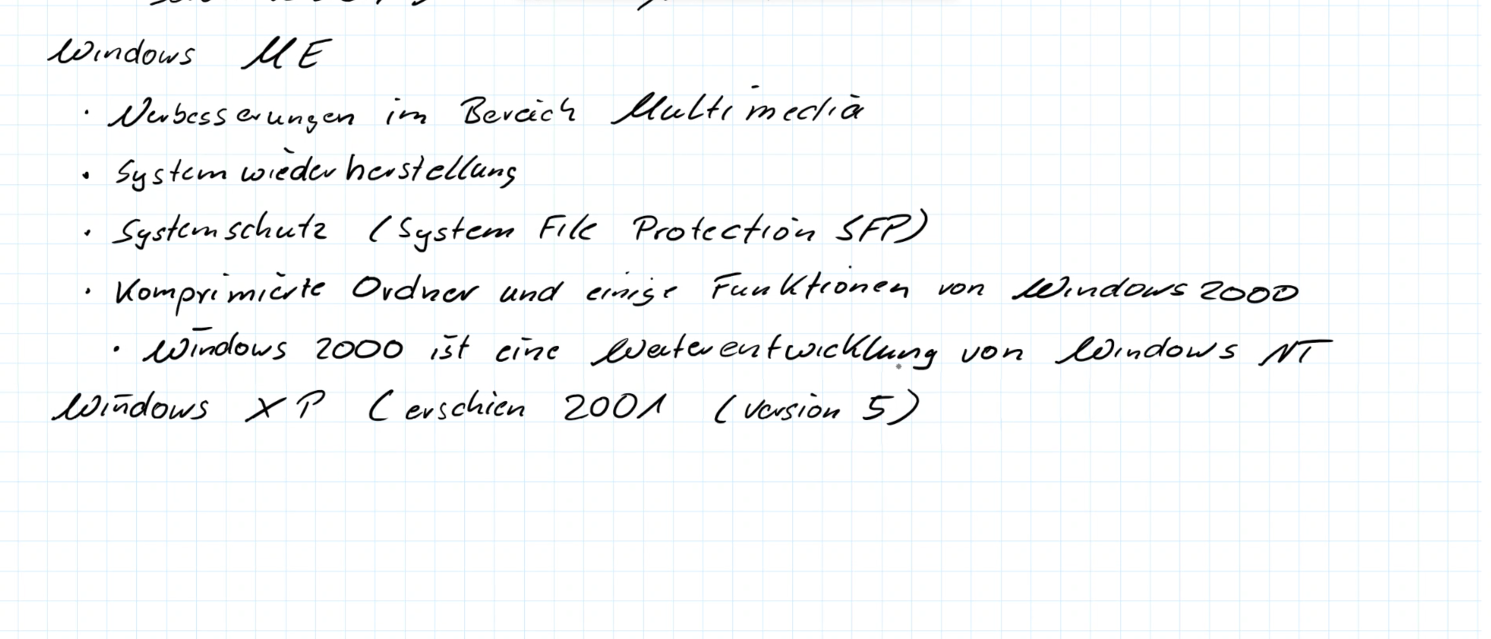 Windows ME
· Verbesserungen im Bereich Multimedia
· Systemwiederherstellung
· Systemschutz (System File Protection SFP)
· Komprimierte Ordner und einige Funktionen von Windows 2000
· Windows 2000 ist eine Weiterentwicklung von Windows NT
Windows XP (erschien 2001 (Version 5)